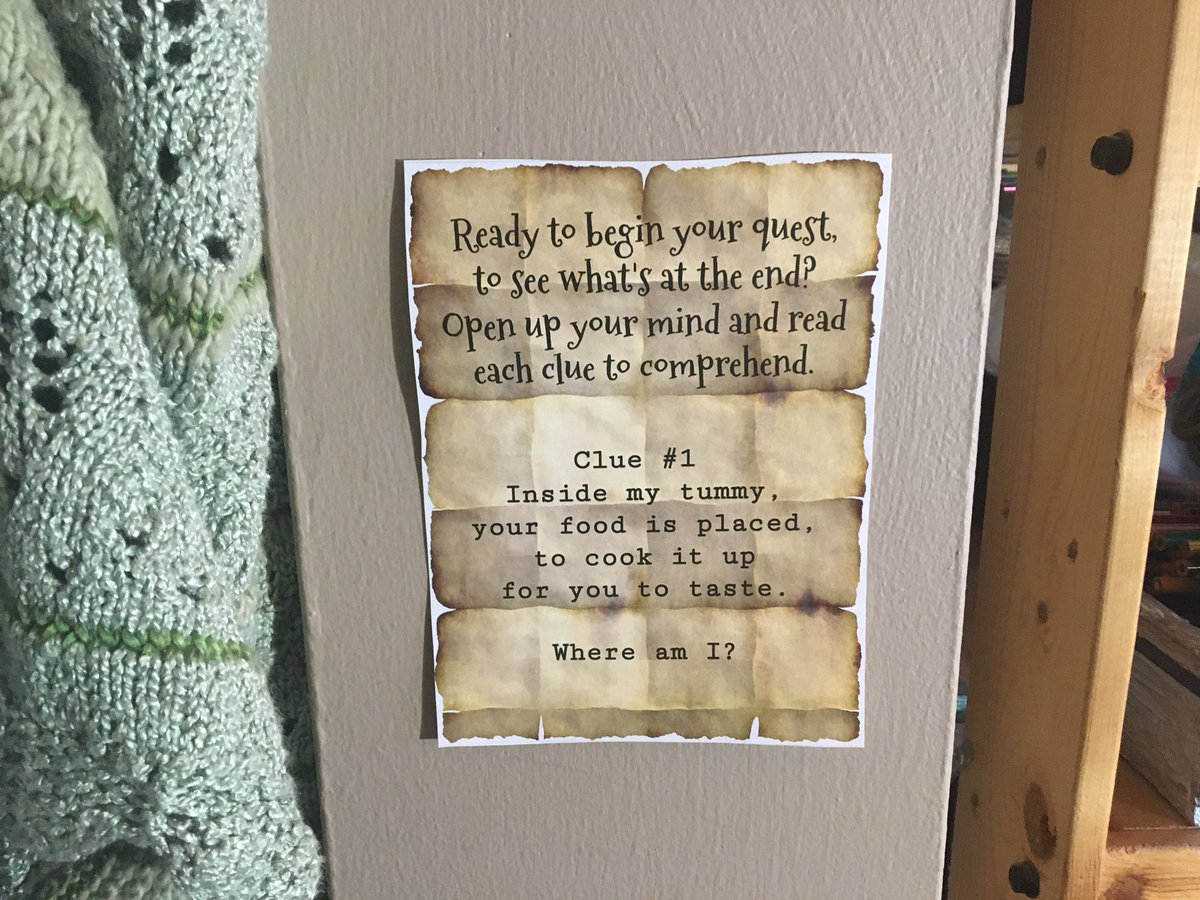 Ready to begin your quest,
to see what's at the end?
Open up your mind and read
each clue to comprehend.
Clue #1
Inside my tummy,
your food is placed,
to cook it up
for you to taste.
Where am I?